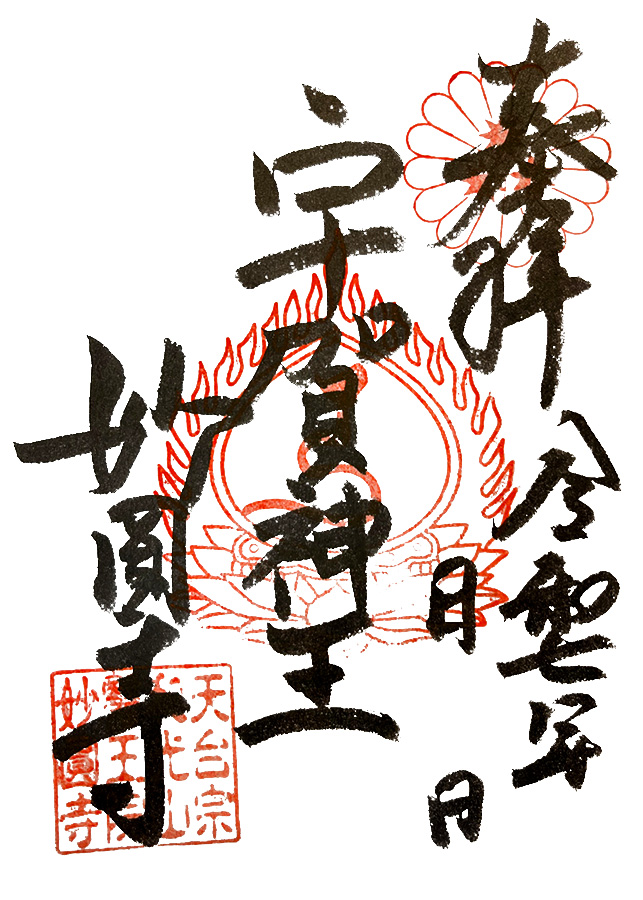 奉拝
令 年
月
日
宇賀神王
妙圓寺
天台宗
代山
王院
妙圓寺